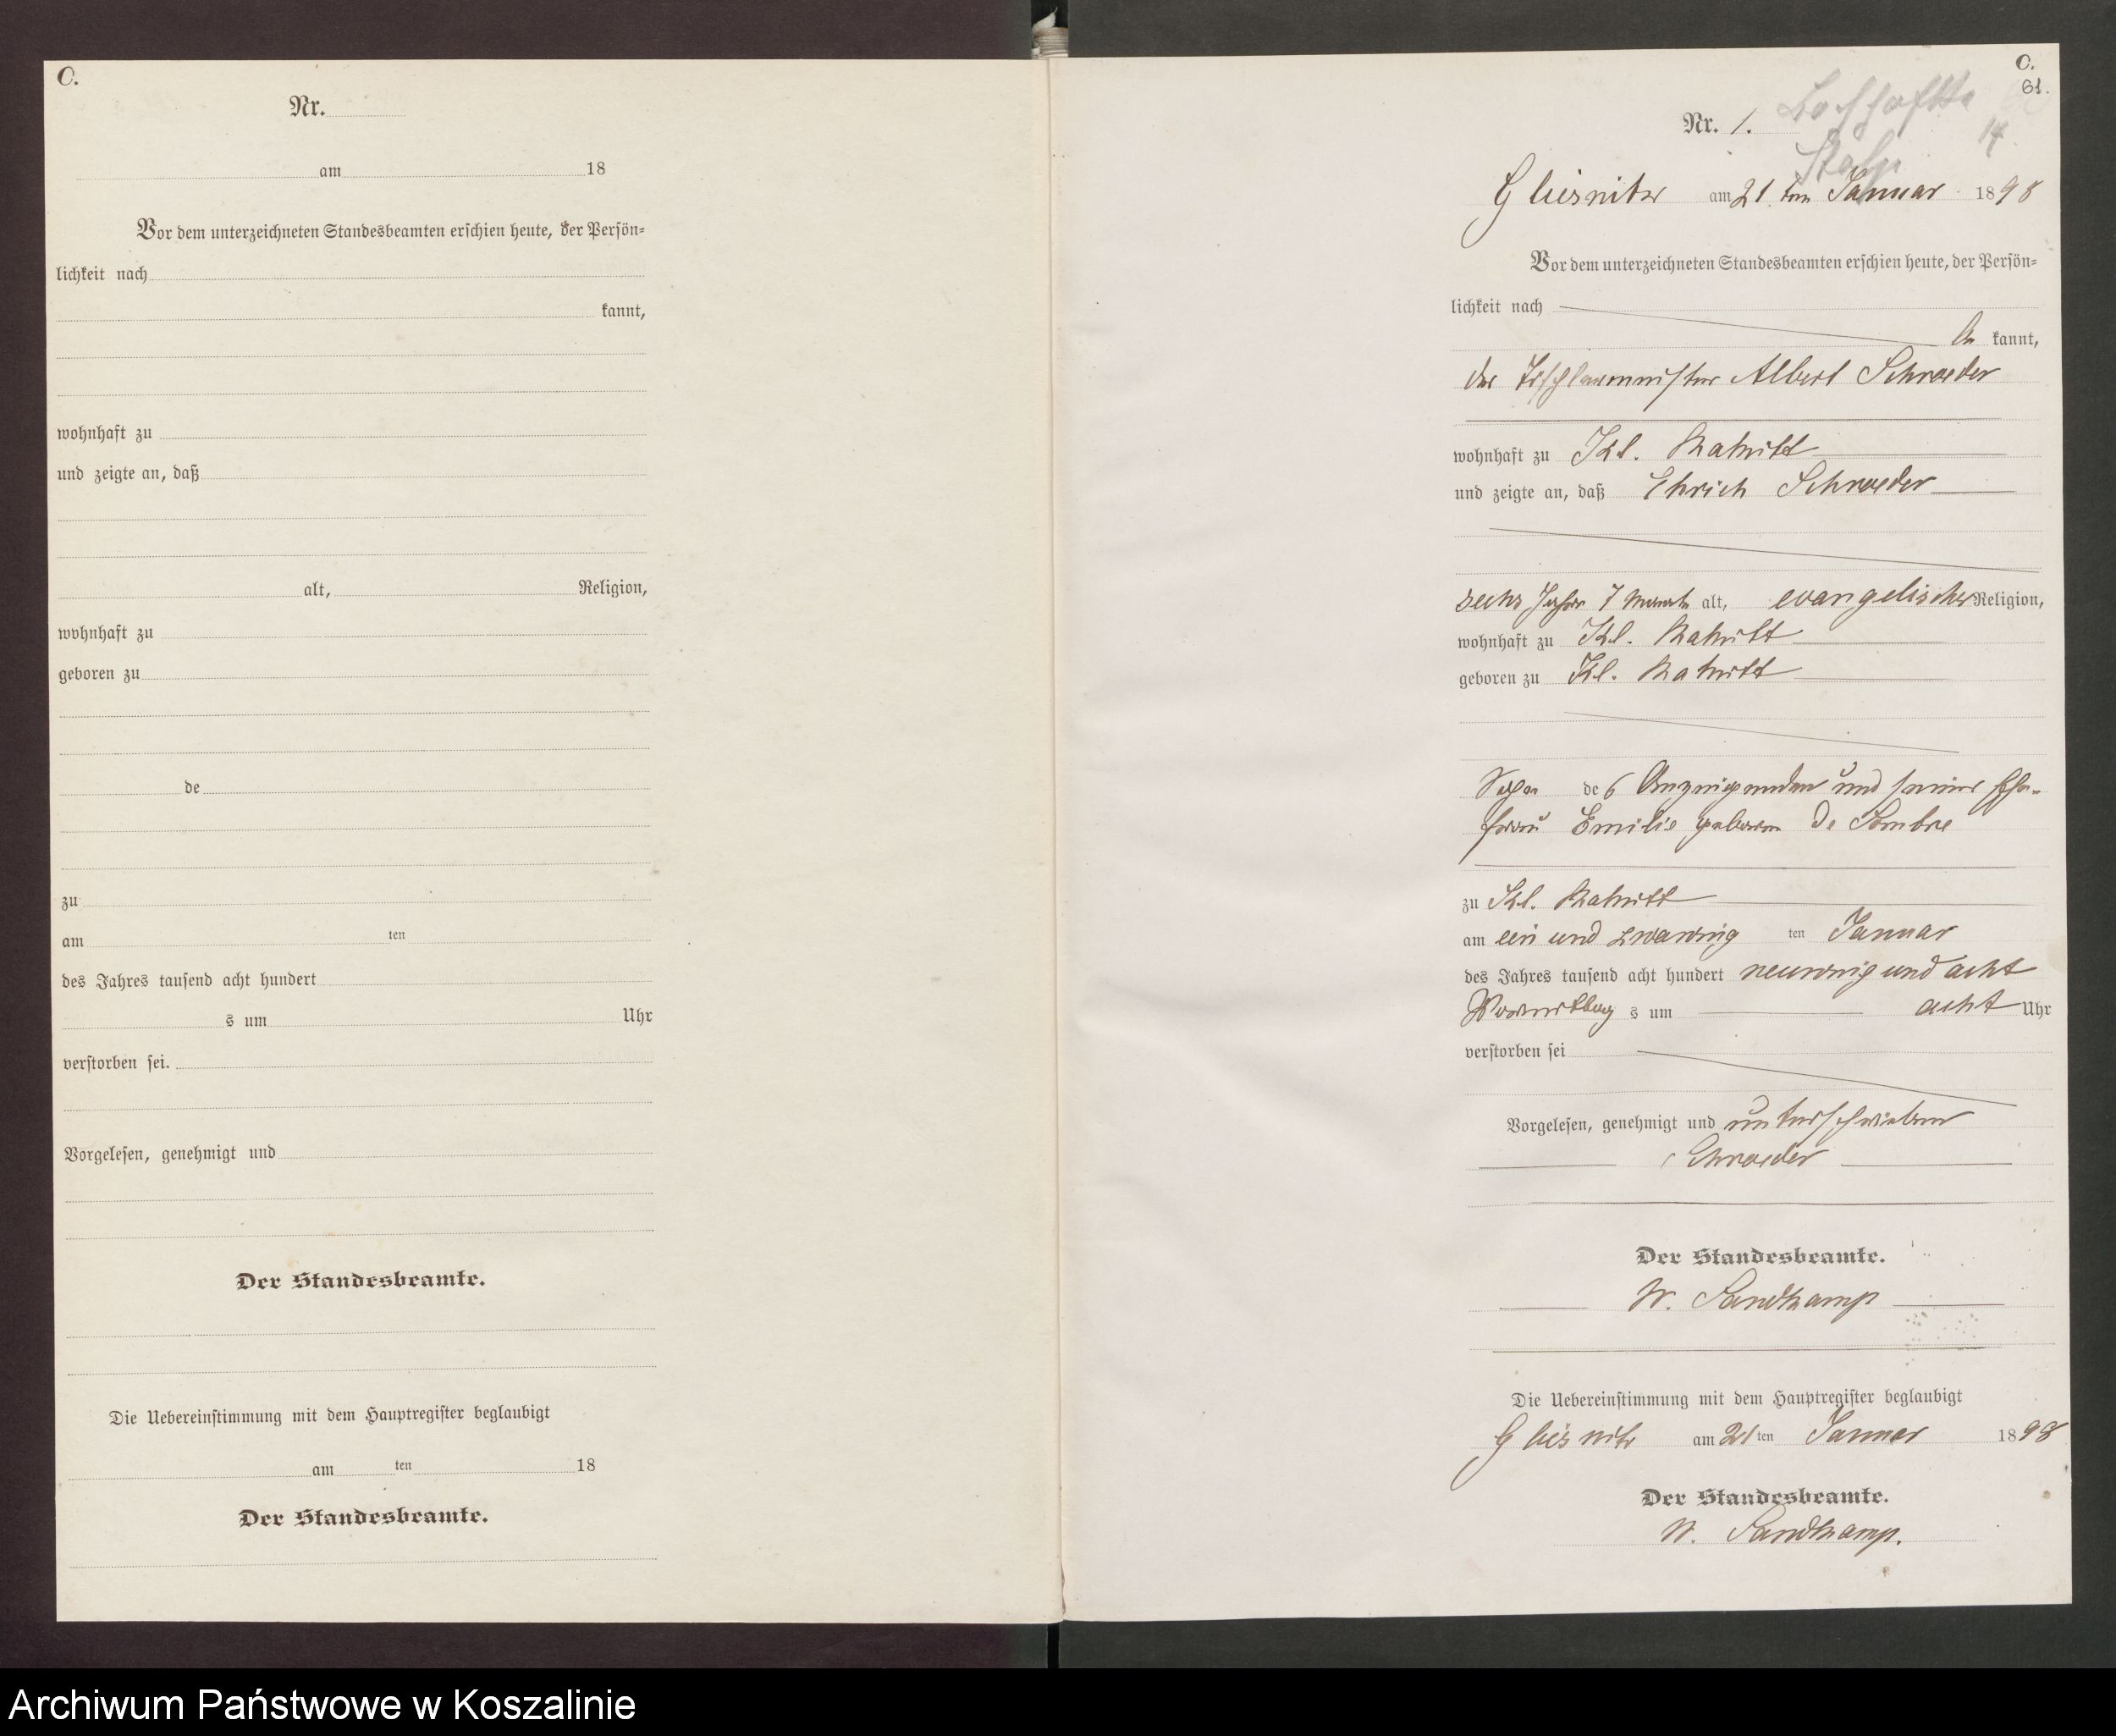 C.
Nr.
am 18
Vor dem unterzeichneten Standesbeamten erschien heute, der Persön=
lichkeit nach
kannt,
wohnhaft zu
und zeigte an, daß
alt, Religion,
wohnhaft zu
geboren zu
de
zu
am ten
des Jahres tausend acht hundert
s um Uhr
verstorben sei.
Vorgelesen, genehmigt und
Der Standesbeamte.
Die Uebereinstimmung mit dem Hauptregister beglaubigt
am ten 18
Der Standesbeamte.
C.
61.
Nr. 1.
14
Gliesnitz am 21 ten Januar 1898
Vor dem unterzeichneten Standesbeamten erschien heute, der Persön=
lichkeit nach
be kannt,
der Tischlermeister Albert Schroeder
wohnhaft zu Kl. Machmin
und zeigte an, daß Ehrich Schroeder
sechs Jahre 7 Monate alt, evangelischer Religion,
wohnhaft zu Kl.
geboren zu Kl.
Sohn des Anzeigenden und seiner Ehe-
frau Emilie geboren de Sombre
zu Kl.
am ein und zwanzig ten Januar
des Jahres tausend acht hundert neunzig und acht
Vormittag s um acht Uhr
verstorben sei
Vorgelesen, genehmigt und unterschrieben
Schroeder
Der Standesbeamte.
W. Sandkamp
Die Uebereinstimmung mit dem Hauptregister beglaubigt
Gliesnitz am 21 ten Januar 1898
Der Standesbeamte.
W. Sandkamp.
Archiwum Państwowe w Koszalinie